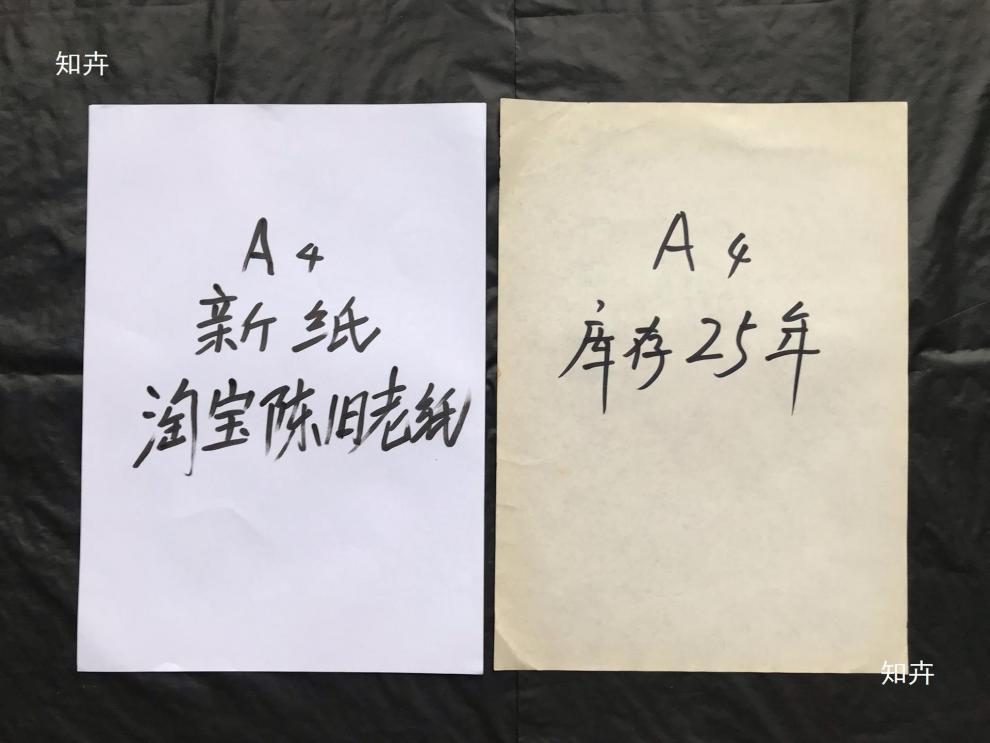 知卉
A4
新纸
淘宝陈旧老纸
A4
库存25年
知卉